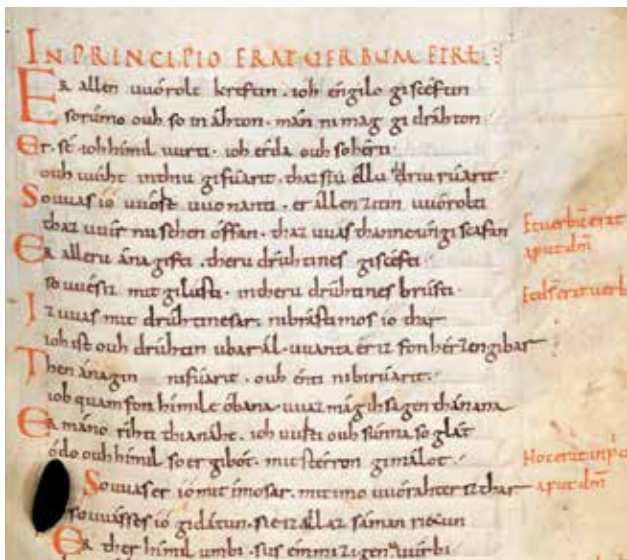 IN PRINCIPIO ERAT UERBUM ET RŁ
Er allen uuórolt kreftin · ioh éngilo giscéftin
so rúmo ouh so in áhton · mán ni mag gi dráhton ·
Er · sé · ioh hímil uurti · ioh érda ouh so hérti
ouh uuíht in thiu gifúarit · thaz síu éllu thriu rúarit ·
So uuas ío uuórt uuonanti · er állen zítin uuórolti
thaz uuír nu sehen óffan · thaz uuas thanne úngi scafan
Er alleru ánagifti · theru drúhtines giscéfti ·
so uués iz mit gilústi · in theru drúhtines brústi ·
Iz uuas mit drúhtine sar · ni brást imo es io thar
ioh ist ouh drúhtin ubar ál · uuanta ér iz fon hérzen gibar
Then ánagin ni fúarit · ouh énti ni birúarit ·
ioh quam fon hímile óbana · uuaz mág ih sagen thánana
Er máno ríhti thia náht · ioh uurti ouh súnna so glát
ódo ouh hímil so er gibót · mit stérron gimálot ·
So uuas er ío mit ímo sar · mit imo uuórahter iz thar
so uuás ses io gidátun · sie iz állaz sáman rietun
Er ther hímil umbi · sus émmizigen uuúrbi ·
Et uerbū erat
aput dm̄
Hoc erat in prī
aput dm̄